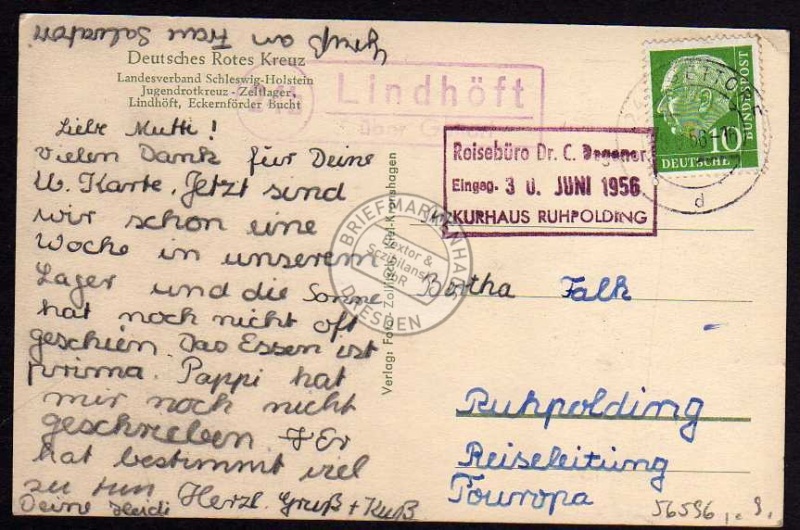 Gruß an Frau Salvatori
Deutsches Rotes Kreuz
Landesverband Schleswig-Holstein
Jugendrotkreuz - Zeltlager,
Lindhöft, Eckernförder Bucht
Lindhöft
über
Liebe Mutti!
vielen Dank für Deine
lb. Karte. Jetzt sind
wir schon eine
Woche in unserem
Lager und die Sonne
hat noch nicht oft
geschien. Das Essen ist
prima. Pappi hat
mir noch nicht
geschrieben. Er
hat bestimmt viel
zu tun. Herzl. Gruß + Kuß
Deine Heidi
Verlag: Foto-Zolitsch, Kiel-Kronshagen
DEUTSCHE
BUNDESPOST
10
d
Reisebüro Dr. C. Degener
Eingeg. 3 0. JUNI 1956
KURHAUS RUHPOLDING
BRIEFMARKENHAUS
DRESDEN
Bertha Falk
Ruhpolding
Reiseleitung
Touropa
56596